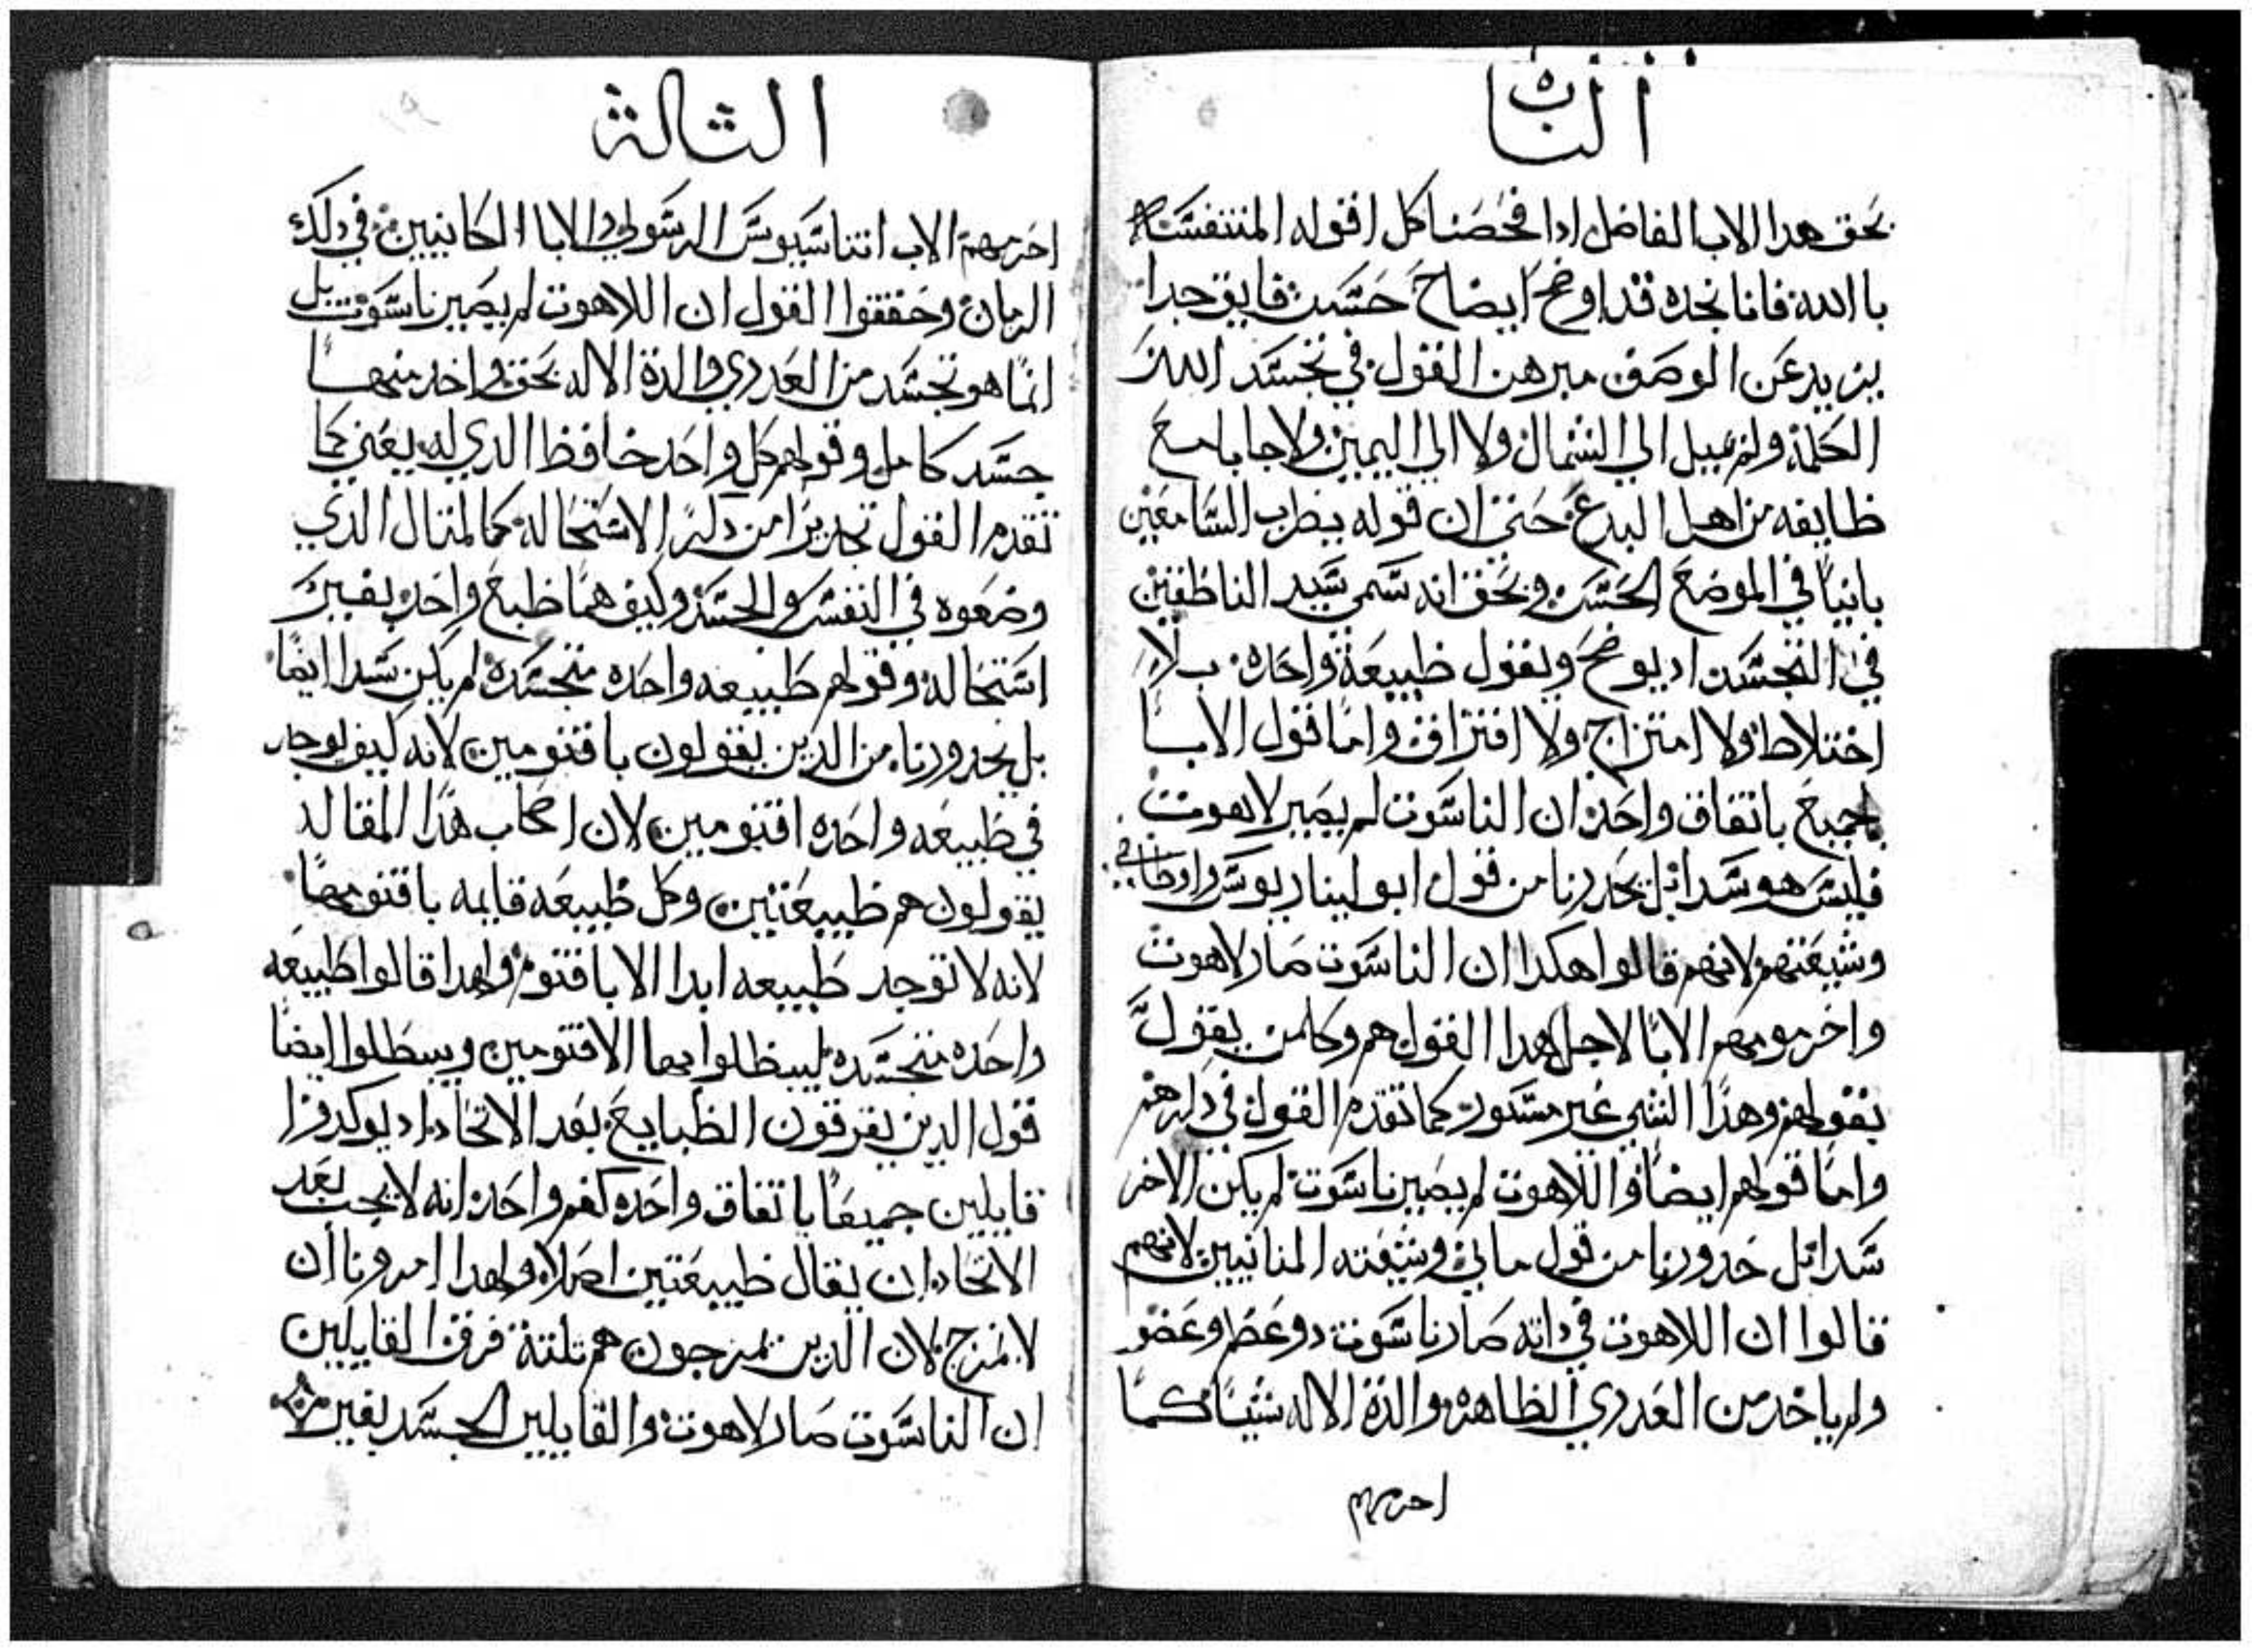 الثانيه
بحق هدا الاب الفاضل ادا فحصنا كل اقوله المتنفسه
بالله فانا نجده قد اوضح ايضاح حسن فايق جدا
يزيد عن الوصف مبرهن القول في تجسد الله
الكلمة ولم يميل الي الشمال ولا الي اليمين ولا حابا مع
طايفه من اهل البدع حتى ان قوله يطرب السامعين
بانيا في الموضع الحسن وبحق انه سمي سيد الناطقين
في التجسد اد يوضح ويقول طبيعة واحده بلا
اختلاط ولا امتزاج ولا افتراق واما قول الابا
الجميع باتفاق واحد ان الناسوت لم يصير لاهوت
فليس هو سدا بل يحدرنا من قول ابوليناريوس واوطاخي
وشيعتهم لانهم قالوا هكدا ان الناسوت صار لاهوت
واخرموهم الابا لاجل هدا القول هم وكلمن يقول
بقولهم وهدا الشي غير مستور كما تقدم القول في دكرهم
واما قولهم ايضا واللاهوت لم يصير ناسوت لم يكن الاخر
سدا بل حدورنا من قول ماني وشيعته المنانيين لانهم
قالوا ان اللاهوت في داته صار ناسوت دو عظم وعضو
ولم ياخد من العدري الطاهره والدة الاله شيا كما
احرمهم
الثالثة
احرمهم الاب اتناسيوس الرسولي والابا الكاينيين في دلك
الزمان وحققوا القول ان اللاهوت لم يصير ناسوت بل
انما هو تجسد من العدري والدة الاله بحق واخد منها
جسد كامل وقولهم كل واحد حافظ الدي له يعني كما
تقدم القول تحديرا من دكر الاستحاله كمالمتال الدي
وضعوه في النفس والجسد وكيف هما طبع واحد بغير
استحاله وقولهم طبيعه واحده متجسده لم يكن سدا ايضا
بل يحدورنا من الدين يقولون باقنومين لانه كيف يوجد
في طبيعه واحده اقنومين لان اصحاب هدا المقاله
يقولون هم طبيعتين وكل طبيعه قايمه باقنومها
لانه لا توجد طبيعه ابدا الا باقنوم ولهدا قالوا طبيعه
واحده متجسده ليبطلوا بها الاقنومين ويبطلوا ايضا
قول الدين يفرقون الطبايع بعد الاتحاد اد يوكدورا
قايلين جميعا باتفاق واحد كفم واحد انه لا يجب بعد
الاتحاد ان يقال طبيعتين اصلا ولهدا امرونا ان
لا نمزج لان الدين يمزجون هم تلتة فرق القايلين
ان الناسوت صار لاهوت والقايلين الجسد بغير